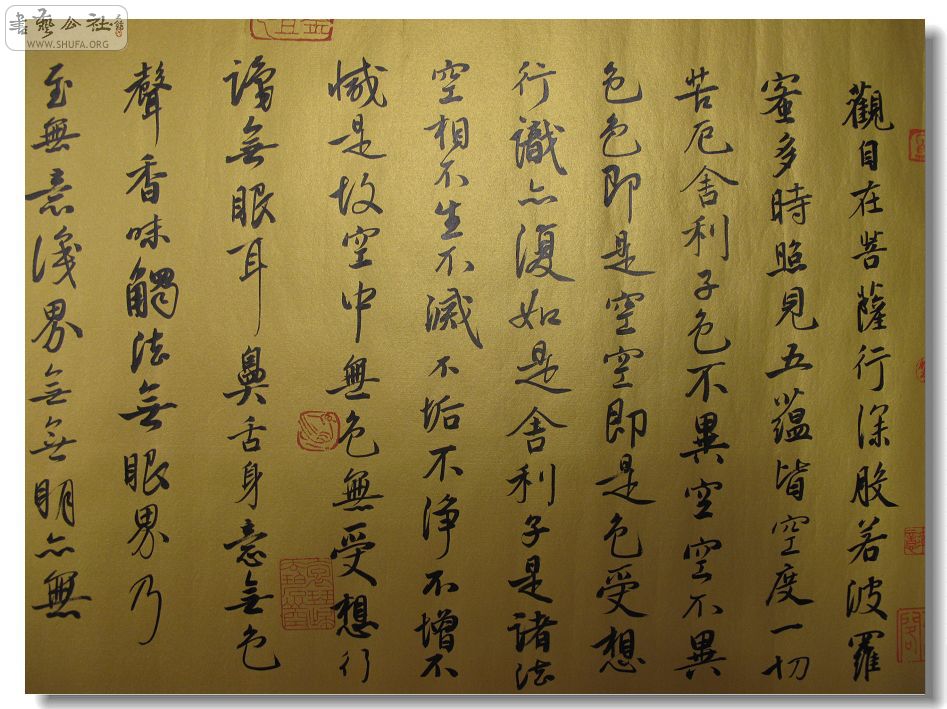 書藝公社
WWW.SHUFA.ORG
觀自在菩薩行深般若波羅
蜜多時照見五蘊皆空度一切
苦厄舍利子色不異空空不異
色色即是空空即是色受想
行識亦復如是舍利子是諸法
空相不生不滅不垢不淨不增不
減是故空中無色無受想行
識無眼耳鼻舌身意無色
聲香味觸法無眼界乃
至無意識界無無明亦無